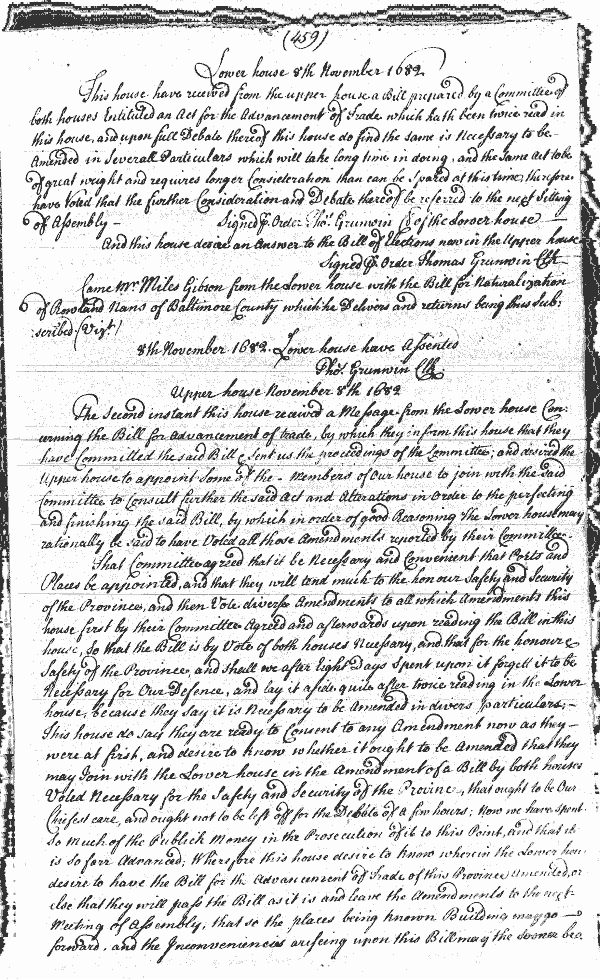 (459)
Lower house 8th November 1682
This house have received from the upper house a Bill prepared by a Committee of
both houses Entituled an Act for the Advancement of Trade which hath been twice read in
this house, and upon full Debate thereof this house do find the same is Necessary to be
Amended in Severall Particulars which will take long time in doing, and the Same Act to be
of great weight and requires longer Consideration than can be Spared at this time, therefore
have Voted that the further Consideration and Debate thereof be referred to the next Sitting
of Assembly — Signed P. Order Tho. Grunwin Cl of the Lower house —
And this house desire an Answer to the Bill of Elections now in the Upper house
Signed P. Order Thomas Grunwin Clk
Came Mr Miles Gibson from the Lower house with the Bill for Naturalization
of Rowland Nans of Baltimore County which he Delivers and returns being thus Sub:
:scribed (Vizt)
8th November 1682. Lower house have Assented
Tho. Grunwin Clk.
Upper house November 8th 1682
The Second instant this house received a Message from the Lower house Con:
:cerning the Bill for Advancement of trade, by which they inform this house that they
have Committed the said Bill & Sent us the proceedings of the Committee; and desired the
Upper house to appoint Some of the - Members of Our house to join with the Said
Committee to Consult further the said Act and Alterations in Order to the perfecting
and finishing the said Bill, by which in order of good Reasoning the Lower house may
rationally be said to have Voted all those Amendments reported by their Committee.
That Committee agreed that it be Necessary and Convenient that Ports and
Places be appointed, and that they will tend much to the honour Safety and Security
of the Province, and then Vote diverse Amendments to all which Amendments this
house first by their Committee Agreed and afterwards upon reading the Bill in this
house, So that the Bill is by Vote of both houses Necessary, and that for the honour &
Safety of the Province, and shall we after Eight Days Spent upon it forgett it to be
Necessary for Our Defence, and lay it aside quite after twice reading in the Lower
house, because they say it is Necessary to be Amended in divers particulars; —
This house do say they are ready to Consent to any Amendment now as they —
were at first, and desire to know whether it ought to be Amended that they
may Join with the Lower house in the Amendment of a Bill by both houses
Voted Necessary for the Safety and Security of the Province, that ought to be Our
Chiefest care, and ought not to be left off for the Debate of a few hours; Now we have Spent
So much of the Publick Money in the Prosecution of it to this Point, and that it
is so farr Advanced; Wherefore this house desire to know wherein the Lower hou
desire to have the Bill for the Advancement of Trade of this Province amended, or
else that they will pass the Bill as it is and leave the Amendments to the next
Meeting of Assembly, that so the places being known Building may go —
forward, and the Inconveniencies ariseing upon this Bill may the Sooner be